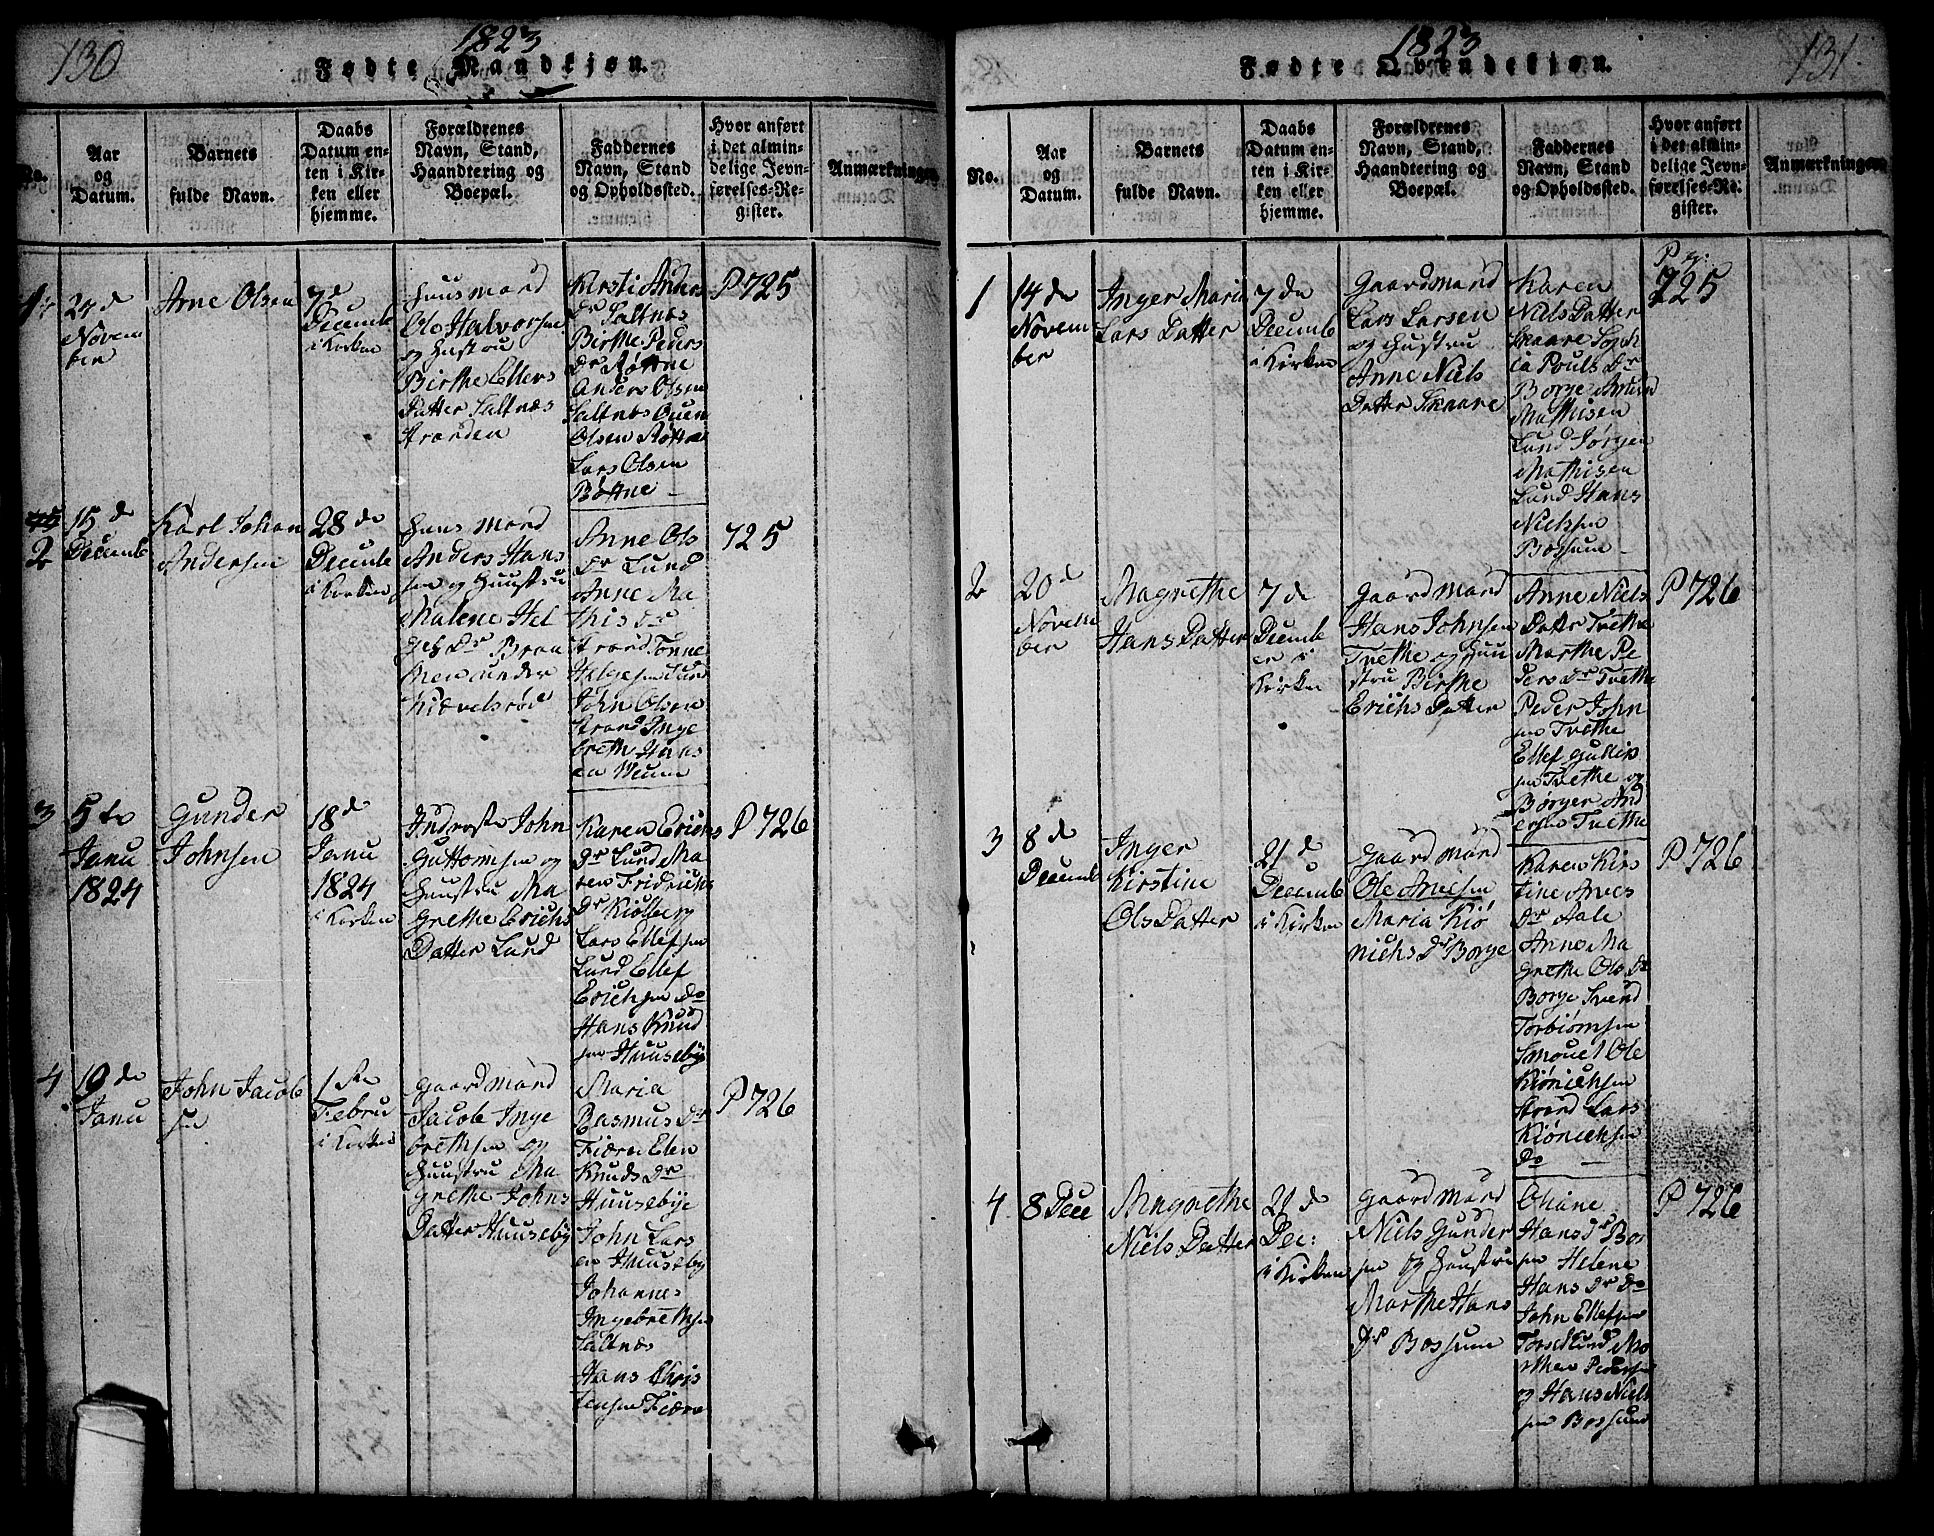 130
1823
Fødte Mandkjøn.
No.
Aar
og
Datum.
Barnets
fulde Navn.
Daabs
Datum en-
ten i Kir-
ken eller
hjemme.
Forældrenes
Navn, Stand,
Haandtering og
Boepæl.
Faddernes
Navn, Stand
og Opholdssted.
Hvor anført
i det almin-
delige Jevn-
førelses-Re-
gister.
Anmærkninger
24 d
Novem
ber
Arne Olsen
7 d
Decemb
i Kirken
Huusmand
Ole Halvorsen
og Hustru
Birthe Ellers
Datter Saltnæs
stranden
Kirsti Anders
Dr Saltnæs
Birthe Peders
Dr Røttne
Anders Olsen
Saltnæs
Olsen Røttne
Lars Olsen
Røttne
P 725
2
15 d
Decemb
Karl Johan
Andersen
28 de
Decemb
i Kirken
Huus Mand
Anders Han
sen og Huustru
Malene Hel
ges Dr Bran
under
Anne Ols
Dr Lund
Anne Ma
this Dr
Strand Tønne
Helgesen Lund
John Olsen
Strand Inge
breth Hans
en Weum
725
3
5 te
Janu
1824
Gunder
Johnsen
18 d
Janu
1824
i Kirken
John
Guttormsen og
Huustru Ma
Grethe Erichs
Datter Lund
Karen Erichs
Dr Lund Ma
ren Fridrichs
Dr Kiølberg
Lars Ellefsen
Lund Ellef
Erichsen Do
Hans Knud
sen Huusebÿe
P 726
4
19 de
Janu
John Jacob
sen
1 ste
Febru
i Kirken
Gaardmand
Jacob Inge
brethsen og
Huustru Ma
Grethe Johns
Datter Huusebÿ
Maria
Rasmus Dr
Fiære Elen
Knuds Dr
Huusebÿe
John Lars
en Huusebÿ
Johannes
Ingebrethsen
Saltnæs
Hans Chris
tensen Fiære
P 726
131
1823
Fødte Qvindekjøn.
No.
Aar
og
Datum.
Barnets
fulde Navn.
Daabs
Datum en-
ten i Kir-
ken eller
hjemme.
Forældrenes
Navn, Stand,
Haandtering og
Boepæl.
Faddernes
Navn, Stand
og Opholdssted.
Hvor anført
i det almin-
delige Jevn-
førelses-Re-
gister.
Anmærkninger
1
14 de
Novem
ber
Inger Maria
Lars Datter
7 de
Decemb
i Kirken
Gaardmand
Lars Larsen
og Hustru
Anne Niels
Datter Skaare
Karen
Niels Datter
Skaare Soph
ia Pouls Dr
Borge
Mathisen
Lund Jørgen
Mathisen
Lund Hans
Nielsen
Bossum
725
2
20 d
Novem
ber
Magrethe
Hans Datter
7 de
Decemb
er i
Kirken
Gaardmand
Hans Johnsen
Tvethe og Huu
stru Birthe
Erichs Datter
Anne Niels
Datter Tvethe
Marthe Pe
ders Dr Tvethe
Peder John
sen Tvethe
Ellef Gullik
sen Tvethe og
Børger And
ersen Tvethe
P 726
3
8 d
Decemb
Inger
Kirstine
Ols Datter
21 d
Decemb
i Kirken
Gaardmand
Ole Arvesen
Maria Kiø
nichs Dr Borge
Karen Kirs
tine Arves
Dr Aale
Anne Ma
grethe Ols Dr
Borge Svend
Torbiørnsen
Ole
Kiønichsen
Strand Lars
Kiønichsen
Do
P 726
4
8 Dece
Magrethe
Niels Datter
21 d
Dec:
i Kirken
Gaardmand
Niels Gunder
sen og Huustru
Marthe Hans
Dr Bossum
Oliane
Hans Dr Bos
sum Helene
Hans Dr Do
John Ellefsen
Mo
rthen Pedersen
og Hans Niel
sen Bossum
P 726